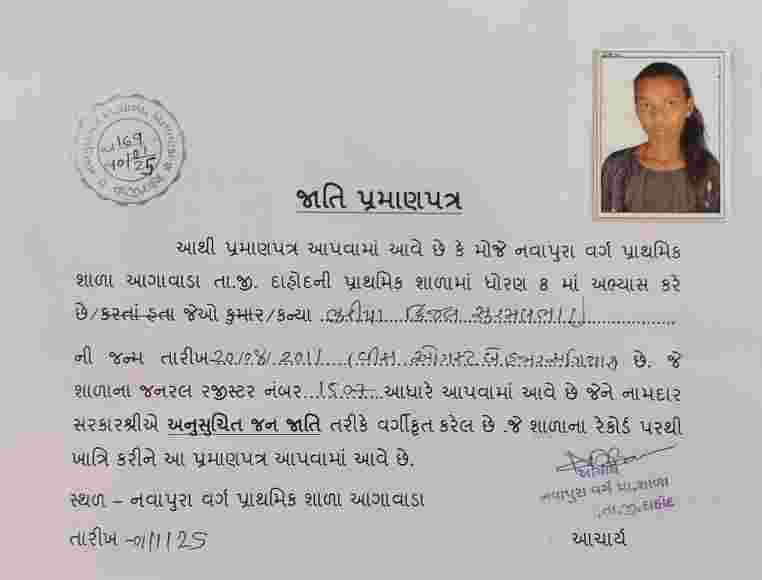 ૧૬૧
૧૦/૦૧/25
જાતિ પ્રમાણપત્ર
આથી પ્રમાણપત્ર આપવામાં આવે છે કે મોજે નવાપુરા વર્ગ પ્રાથમિક
શાળા આગાવાડા તા.જી. દાહોદની પ્રાથમિક શાળામાં ધોરણ 8 માં અભ્યાસ કરે
છે/કરતાં હતા જેઓ કુમાર/કન્યા
ની જન્મ તારીખ 20/08/2011 (વીસ ઓગસ્ટ બે હજાર અગિયાર) છે. જે
શાળાના જનરલ રજીસ્ટર નંબર...1507... આધારે આપવામાં આવે છે જેને નામદાર
સરકારશ્રીએ અનુસુચિત જન જાતિ તરીકે વર્ગીકૃત કરેલ છે .જે શાળાના રેકોર્ડ પરથી
ખાત્રિ કરીને આ પ્રમાણપત્ર આપવામાં આવે છે.
આચાર્ય
નવાપુરા વર્ગ પ્રા.શાળા
તા.જી.દાહોદ
સ્થળ – નવાપુરા વર્ગ પ્રાથમિક શાળા આગાવાડા
તારીખ -
આચાર્ય